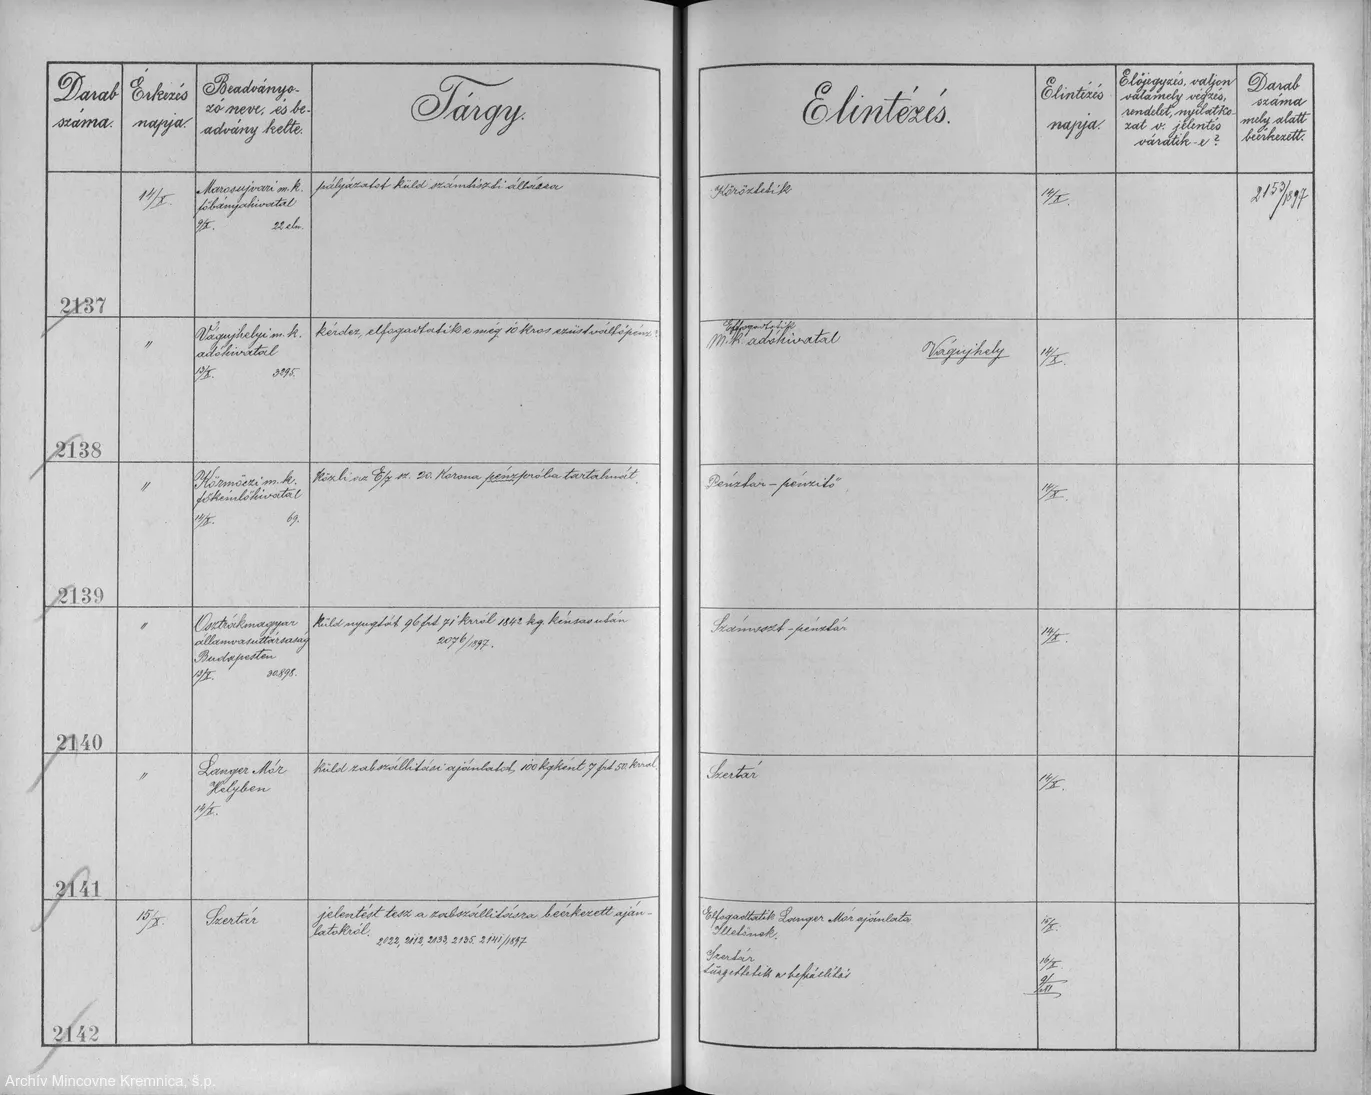 Darab
száma.
Érkezés
napja.
Beadványo-
zó neve, és be-
advány kelte.
Tárgy.
Elintézés.
Elintézés
napja.
Előjegyzés, valjon
valamely végzés,
rendelet, nyilatko-
zat v. jelentés
váratik-e?
Darab
száma
mely alatt
beérkezett.
2137
14/X.
Marosujvári m. k.
főbányahivatal
9/X. 22 eln.
pályázatot küld számtiszti állásra
Köröztetik
14/X.
2153/1897
2138
"
Vágujhelyi m. k.
adóhivatal
13/X. 3295.
kérdez, elfogadtatik e még 10 kros ezüstváltópénz?
Elfogadtatik
M. k. adóhivatal
Vágujhely
14/X.
2139
"
Körmöczi m. k.
főkémlőhivatal
14/X. 69.
közli az E/y sz. 20. Korona pénzpróba tartalmát.
Pénztár – pénzitő
14/X.
2140
"
Osztrákmagyar
államvasuttársaság
Budapesten
13/X. 30898.
küld nyugtát 96 frt 71 krról 1842 kg kénsav után
2076/1897.
Számoszt – pénztár
14/X.
2141
"
Langer Mór
Helyben
14/X.
küld zabszállítási ajánlatot, 100 kgként 7 frt 50 krral.
Szertár
14/X.
2142
15/X.
Szertár
jelentést tesz a zabszállításra beérkezett aján-
latokról.
2022, 2112, 2133, 2135, 2141/1897
Elfogadtatik Langer Mór ajánlata
Illetőnek.
15/X.
Szertár
16/X.
sürgettetik a
9/XII
Archív Mincovne Kremnica, š.p.